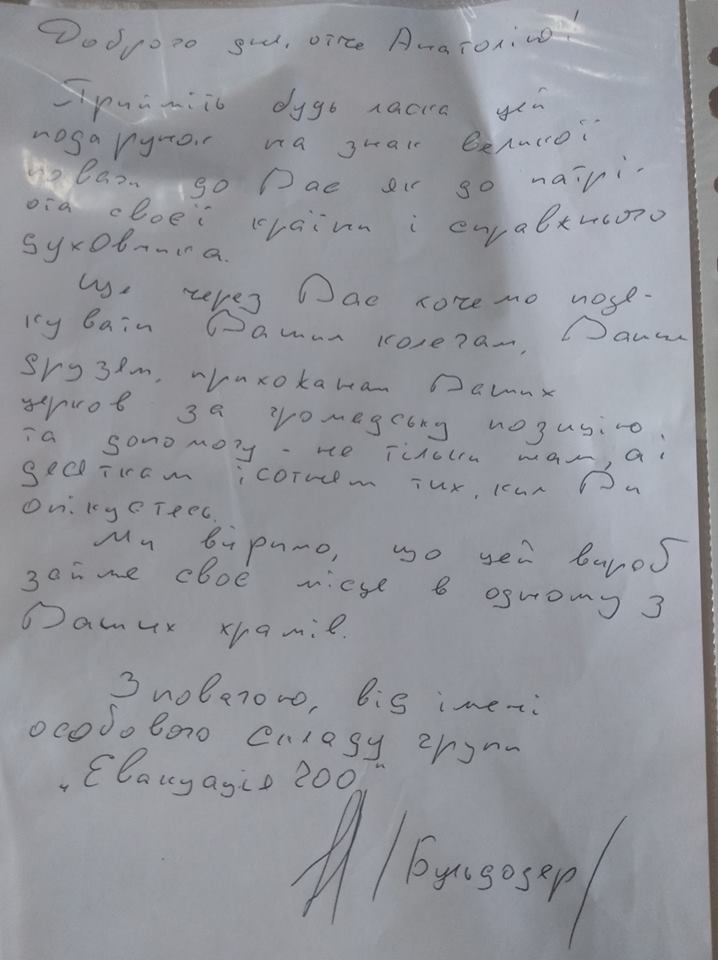 Доброго дня, отче Анатолію!
Прийміть будь ласка цей
подарунок на знак великої
поваги до Вас як до патрі-
ота своєї країни і справжнього
духовника.
Ще через Вас хочемо подя-
кувати Вашим колегам, Вашим
друзям, прихожанам Ваших
церков за громадську позицію
та допомогу - не тільки нам, а і
десяткам і сотням тих, ким Ви
опікуєтесь.
Ми віримо, що цей виріб
займе своє місце в одному з
Ваших храмів.
З повагою, від імені
особового складу групи
"Евакуація 200"
/Бульдозер/